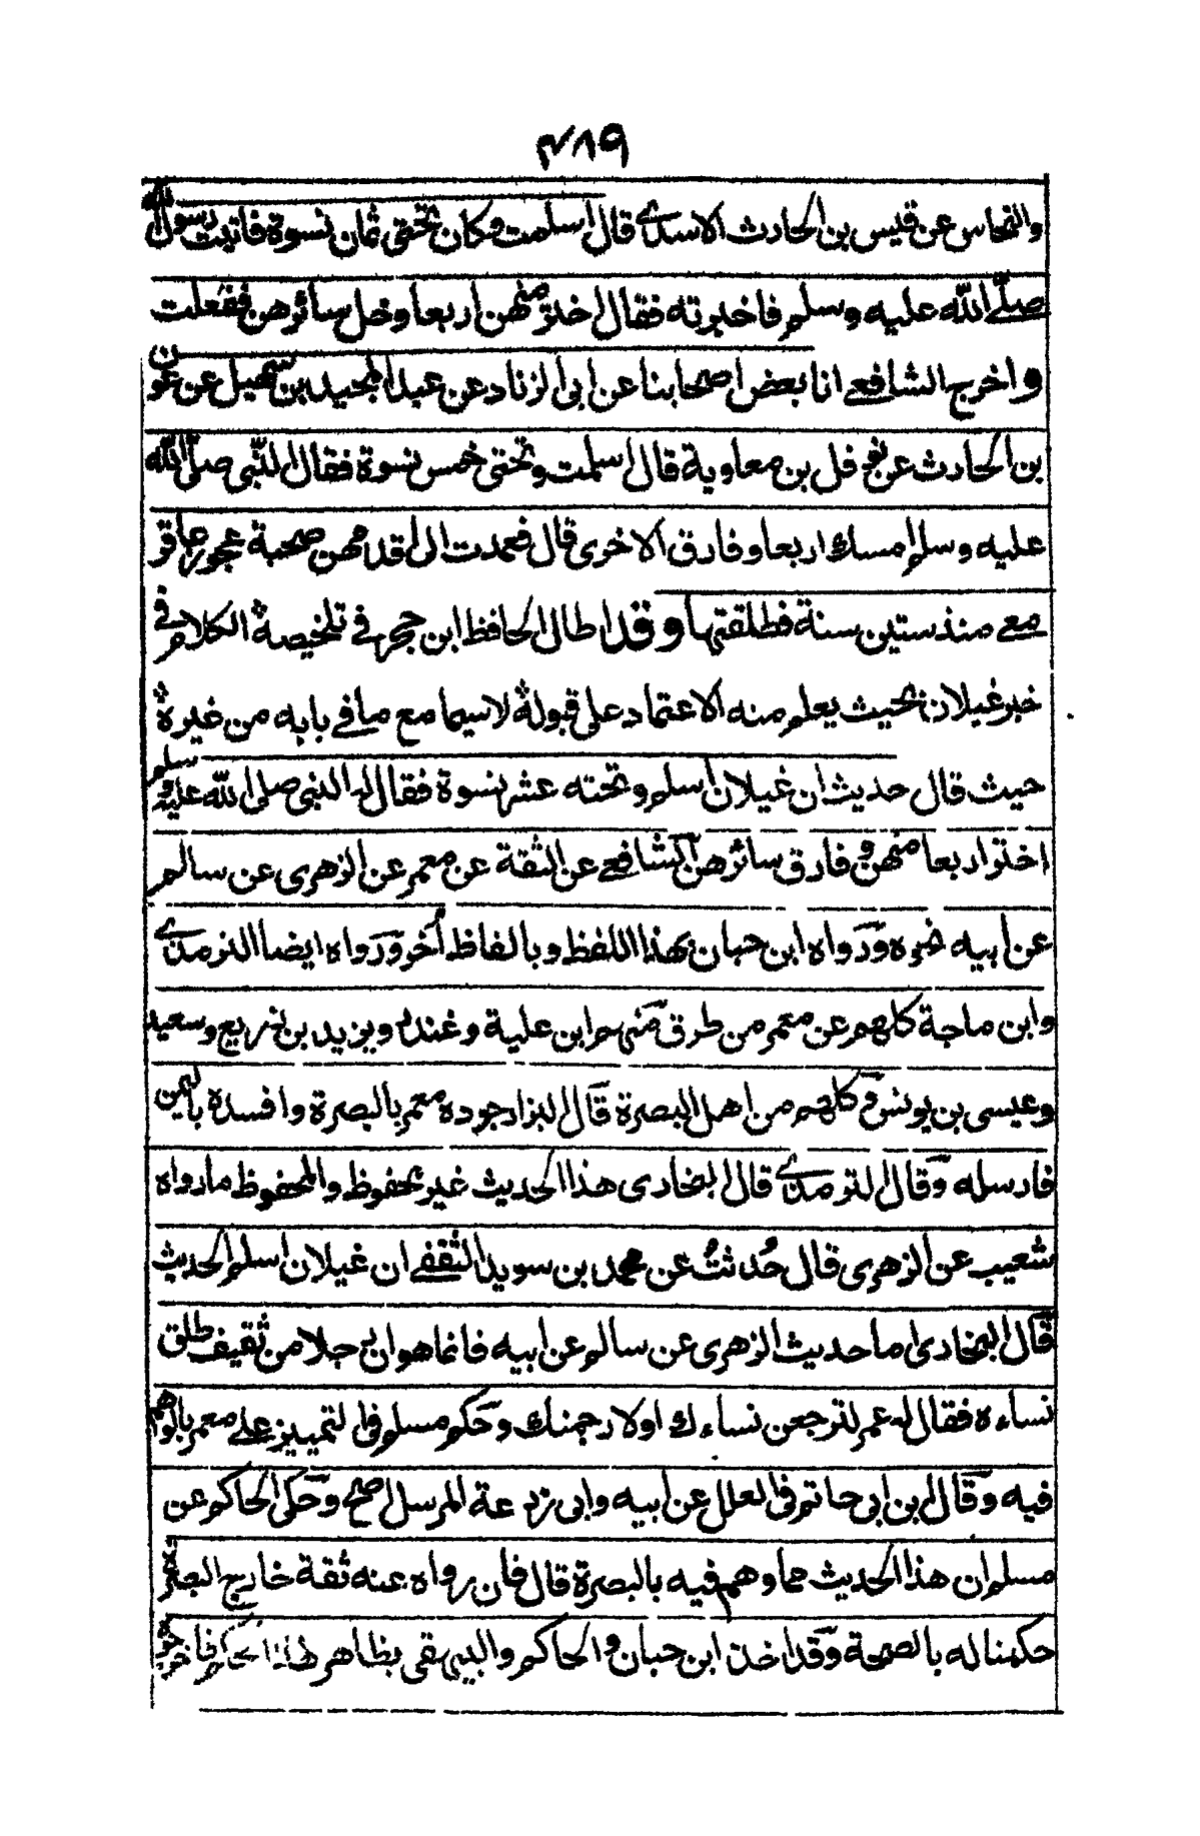 ٤٨٩
والنحاس عن قيس بن الحارث الاسدي قال اسلمت وكان تحتي ثمان نسوة فاتيت رسول الله
صلى الله عليه وسلم فاخبرته فقال اختر منهن اربعا وخل سائرهن ففعلت
واخرج الشافعي انا بعض اصحابنا عن ابي الزناد عن عبد المجيد بن سهيل عن عون
بن الحارث عن نوفل بن معاوية قال اسلمت وتحتي خمس نسوة فقال النبي صلى الله
عليه وسلم امسك اربعا وفارق الاخرى قال فعمدت الى اقدمهن صحبة عجوز عاقر
معي منذ ستين سنة فطلقتها وقد اطال الحافظ ابن حجر في تلخيصه الكلام في
خبر غيلان بحيث يعلم منه الاعتماد على قبوله لاسيما مع ما في بابه من غيره
حيث قال حديث ان غيلان اسلم وتحته عشر نسوة فقال له النبي صلى الله عليه وسلم
اختر اربعا منهن وفارق سائرهن الشافعي عن الثقة عن معمر عن الزهري عن سالم
عن ابيه نحوه ورواه ابن حبان بهذا اللفظ وبالفاظ أخر ورواه ايضا الترمذي
وابن ماجة كلهم عن معمر من طرق منهم ابن علية وغندر ويزيد بن زريع وسعيد
وعيسى بن يونس كلهم من اهل البصرة قال البزار جوده معمر بالبصرة وافسده باليمن
فارسله وقال الترمذي قال البخاري هذا الحديث غير محفوظ والمحفوظ ما رواه
شعيب عن الزهري قال حُدثتُ عن محمد بن سويد الثقفي ان غيلان اسلم الحديث
قال البخاري اما حديث الزهري عن سالم عن ابيه فانما هو ان رجلا من ثقيف طلق
نساءه فقال له عمر لترجعن نساءك اولارجمنك وحكم مسلم في التمييز على معمر بالوهم
فيه وقال ابن ابي حاتم في العلل عن ابيه وابي زرعة المرسل اصح وحكى الحاكم عن
مسلم ان هذا الحديث مما وهم فيه بالبصرة قال فان رواه عنه ثقة خارج البصرة
حكمنا له بالصحة وقد اخذ ابن حبان والحاكم والبيهقي بظاهر هذا الحكم فاخرجوه